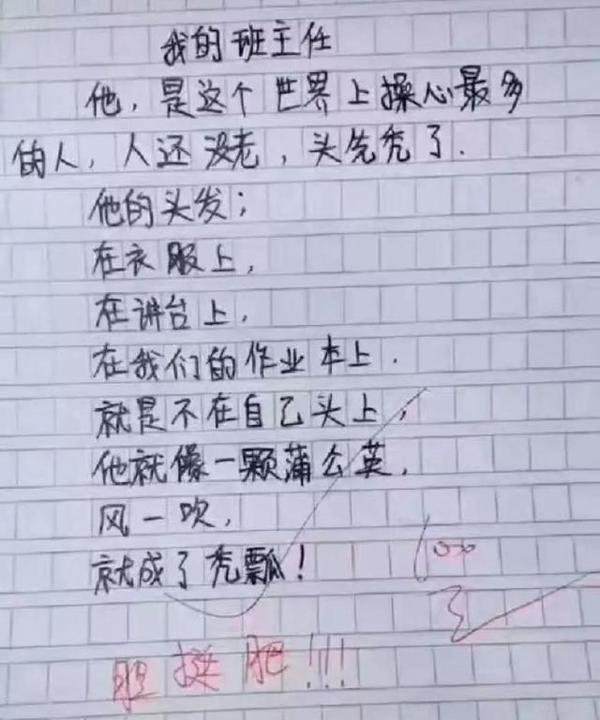 我的班主任
他，是这个世界上操心最多
的人，人还没老，头先秃了.
他的头发；
在衣服上，
在讲台上，
在我们的作业本上.
就是不在自己头上，
他就像一颗蒲公英，
风一吹，
就成了秃瓢！
100
胆挺肥!!!